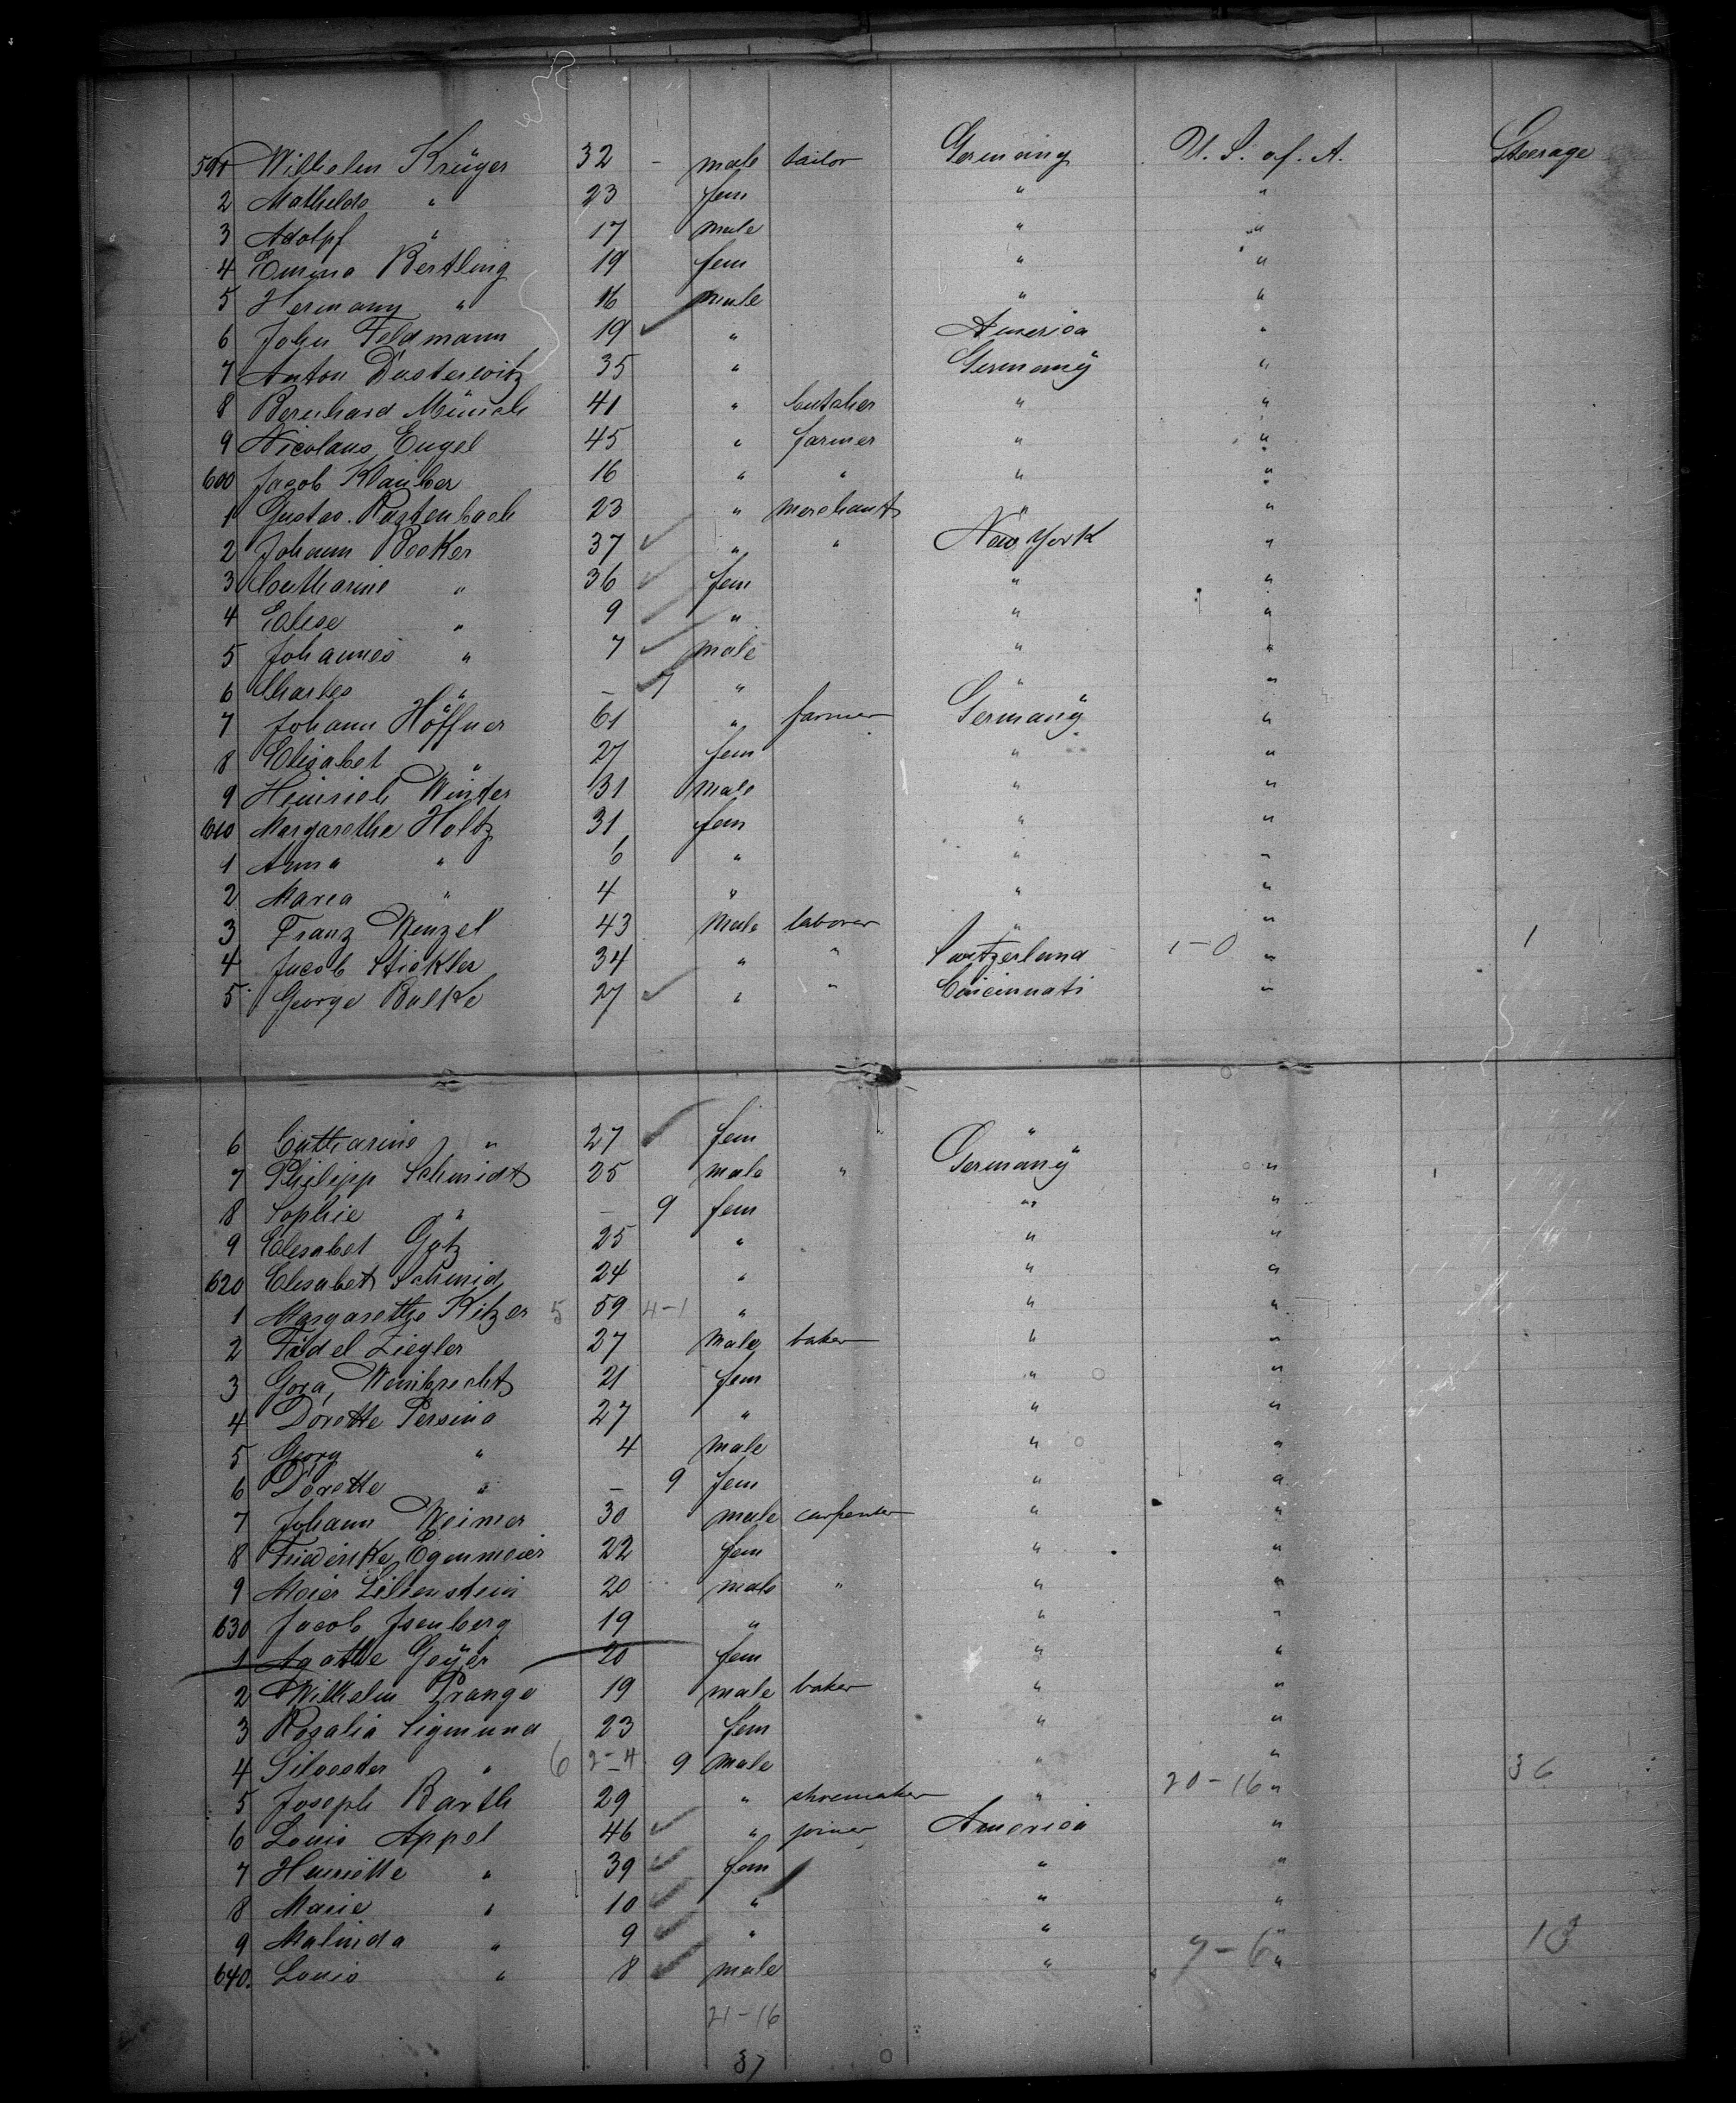 591 Wilhelm Krüger 32 - male tailor Germany U. S. of. A. Steerage
2 Mathilde " 23 fem " "
3 Adolpf " 17 male " "
4 Emma Bertling 19 fem " "
5 Hermann " 16 male " "
6 John Feldmann 19 ✓ " America "
7 Anton Dusterwitz 35 " Germany "
8 Bernhard Münch 41 " butcher " "
9 Nicolaus Engel 45 " farmer " "
600 Jacob Klauber 16 " " " "
1 Gustav. Rastenbach 23 " merchant " "
2 Johann Becker 37 ✓ " " New York "
3 Catharine " 36 ✓ fem " "
4 Elise " 9 ✓ " " "
5 Johannes " 7 ✓ male " "
6 Charles " - ✓ 7 " " "
7 Johann Höffner 61 " farmer Germany "
8 Elisabet " 27 fem " "
9 Heinrich Winter 31 male " "
610 Margarethe Holtz 31 fem " "
1 Anna " 6 " " "
2 Maria " 4 " " "
3 Franz Wenzel 43 male laborer " "
4 Jacob Stickler 34 " " Switzerland 1-0 " 1
5 George Balke 27 ✓ " " Cincinnati "
6 Catharine " 27 ✓ fem " "
7 Philipp Schmidt 25 male " Germany "
8 Sophie " - 9 fem " "
9 Elisabet Götz 25 " " "
620 Elisabet Schmid 24 " " "
1 Margarethe Kitzer 5 59 4-1 " " "
2 Fädel Ziegler 27 male baker " "
3 Weinbrecht 21 fem " "
4 Dorette Persino 27 " " "
5 Georg " 4 male " "
6 Dorette " - 9 fem " "
7 Johann Weimer 30 male carpenter " "
8 Friederike Egenmeier 22 fem " "
9 Meier Lilienstein 20 male " " "
630 Jacob Isenberg 19 " " "
1 Agathe Geÿer 20 fem " "
2 Wilhelm Prange 19 male baker " "
3 Rosalia Sigmund 23 fem " "
4 Silvester " 6 2-4 - 9 male " "
5 Joseph Barth 29 " shoemaker " 20-16 " 36
6 Louis Appel 46 ✓ " joiner America "
7 Henriette " 39 ✓ fem " "
8 Marie " 10 ✓ " " "
9 Malinda " 9 ✓ " " "
640. Louis " 8 ✓ male " 7-6 " 13
21-16
37